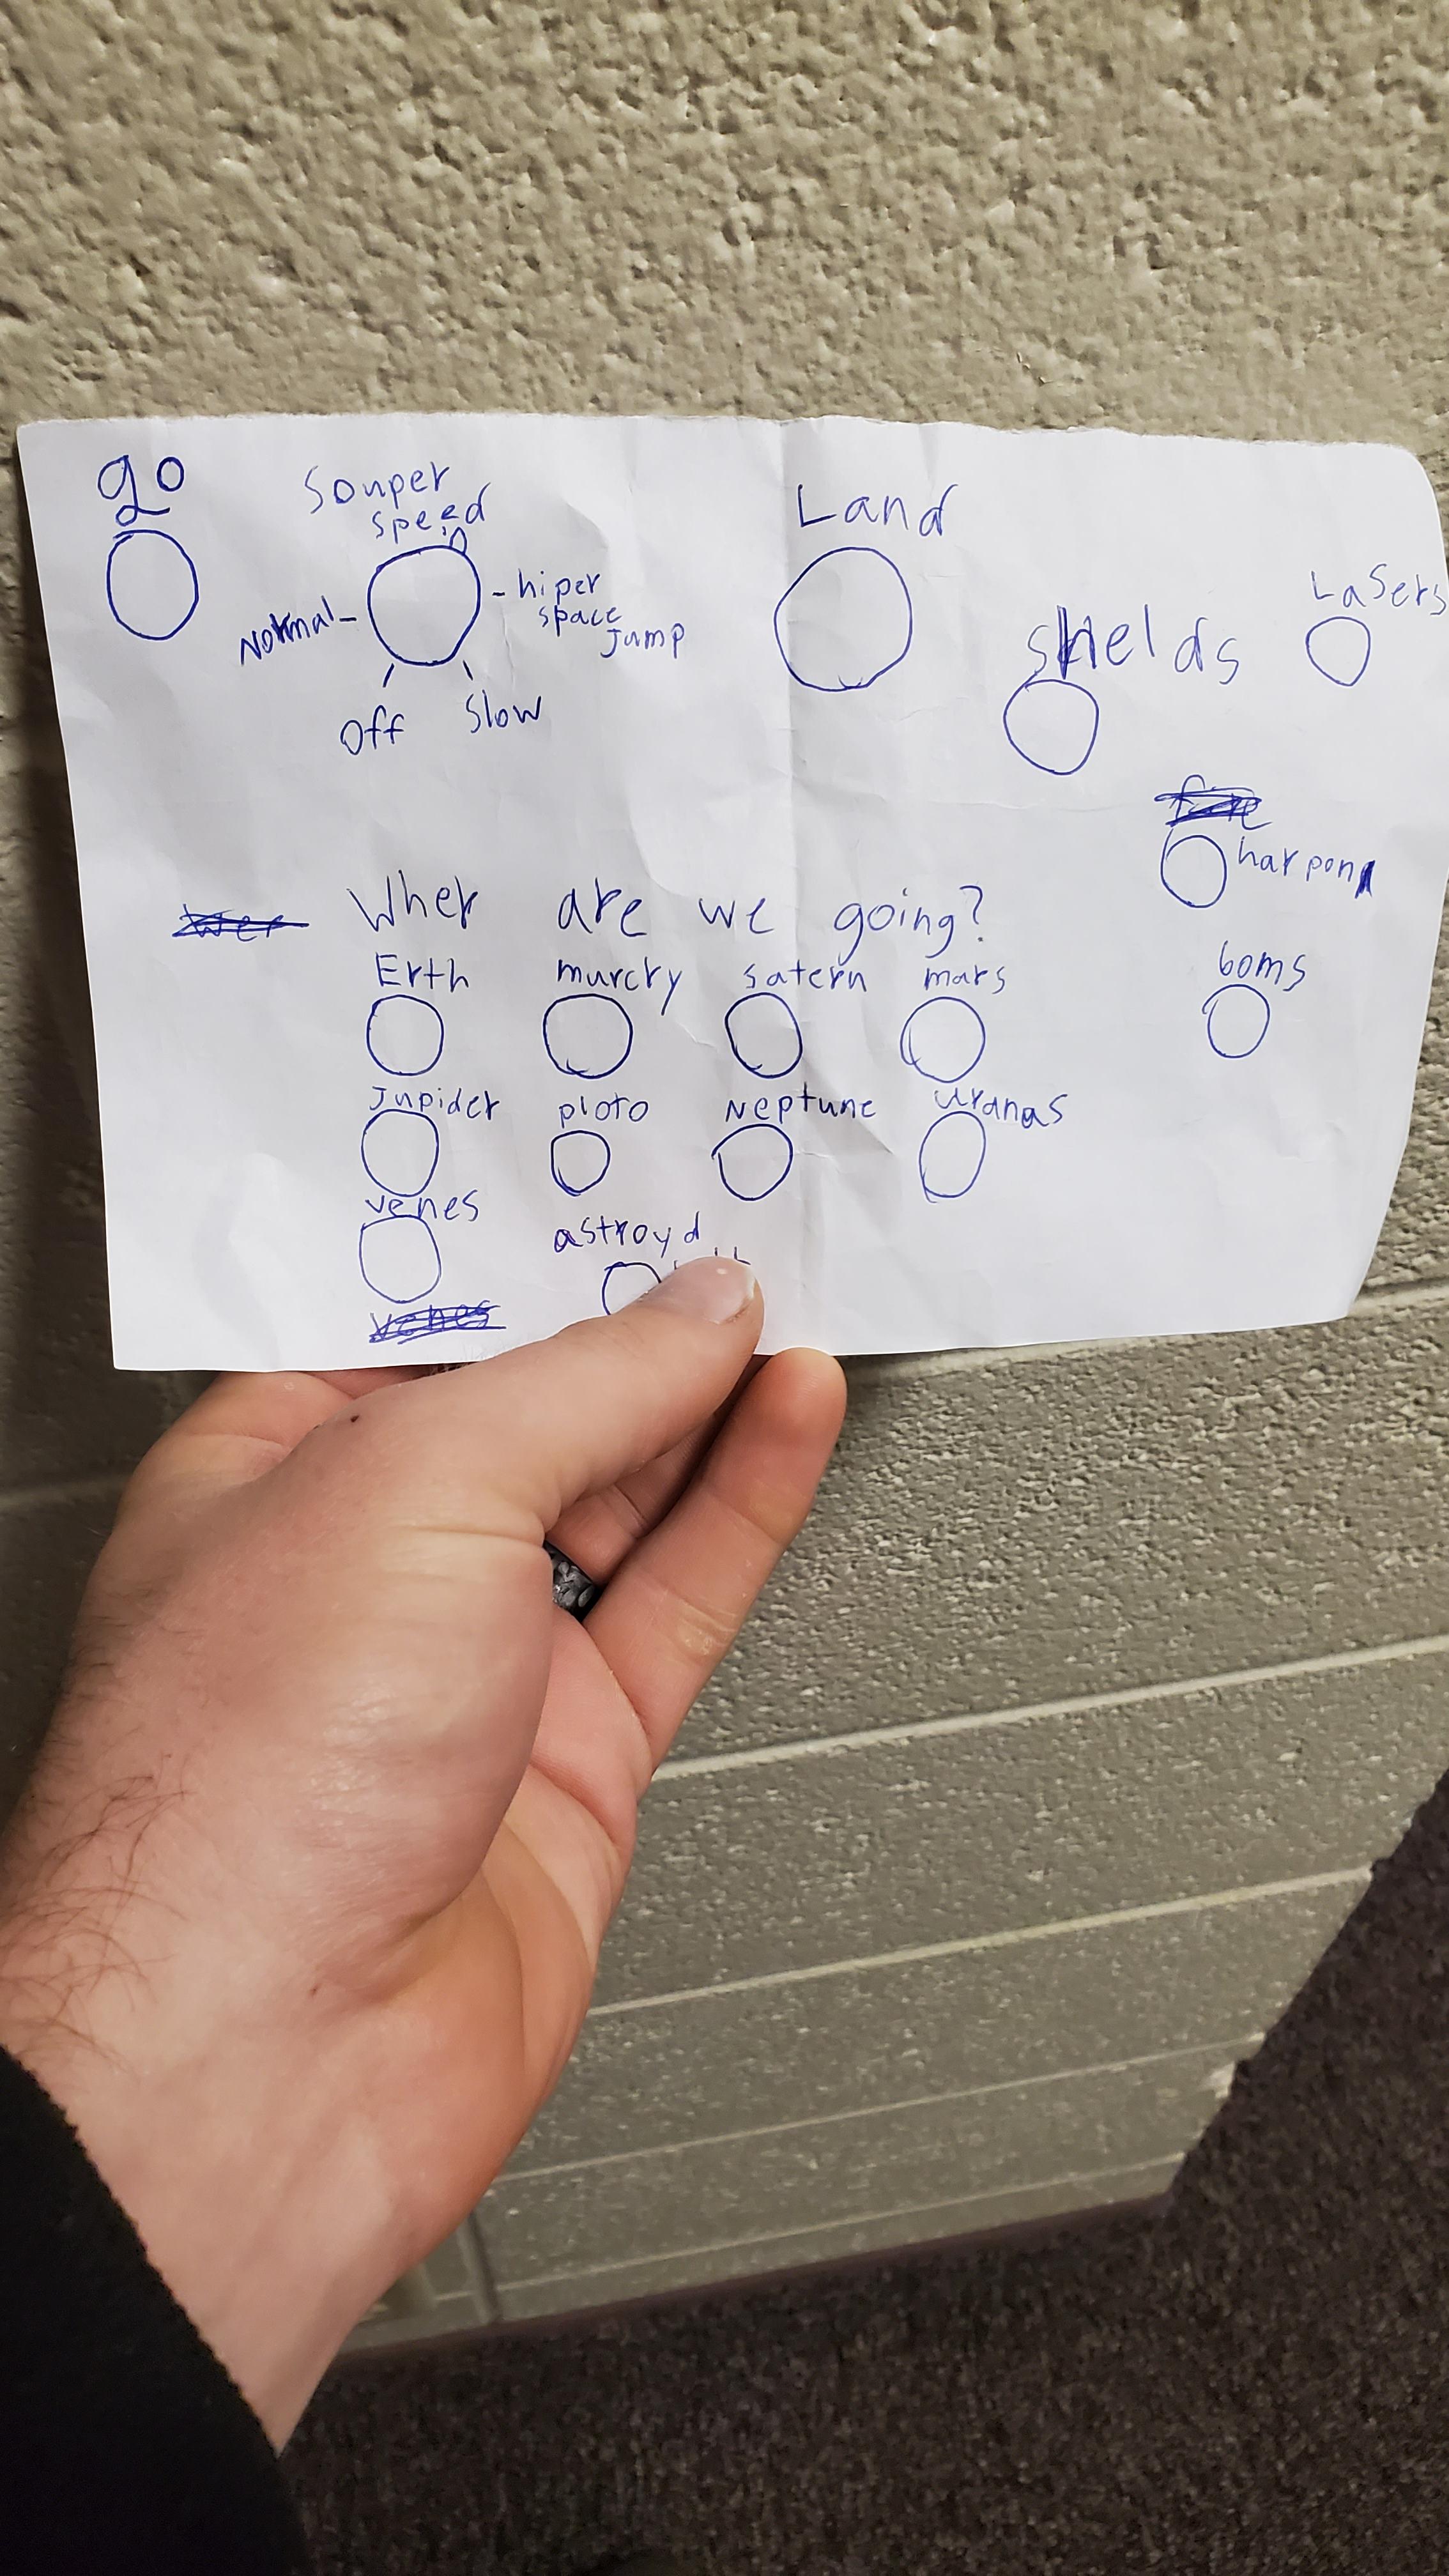 go
Souper
speed
Normal
hiper
space
Jump
Off
Slow
Land
shields
Lasers
harpon
boms
Wher are we going?
Erth murcry satern mars
Jupider ploto Neptune uranas
venes
astroyd
venes